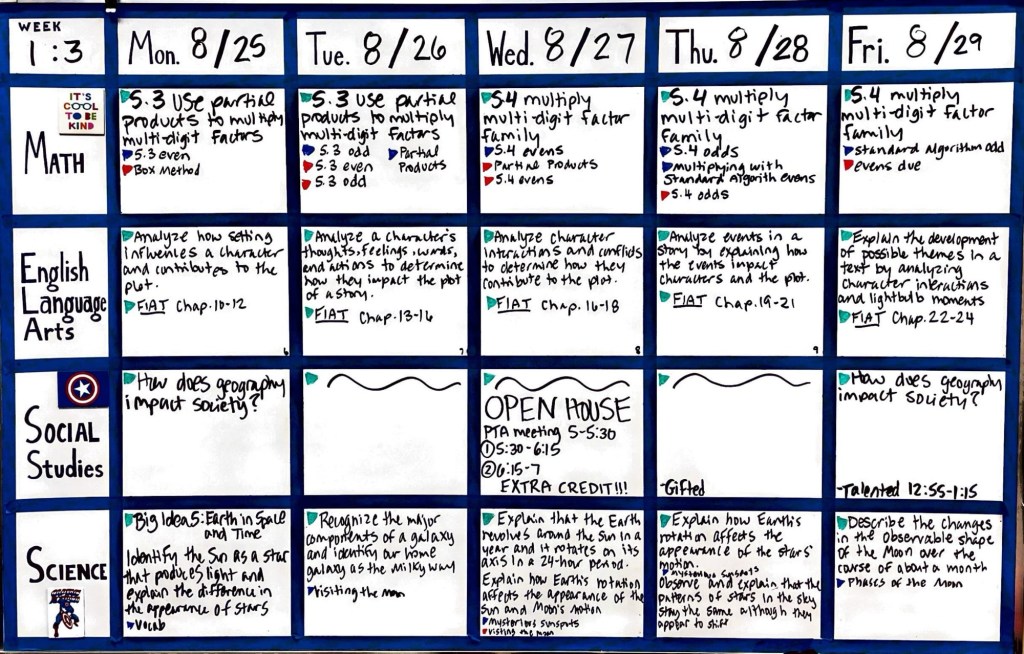 WEEK
1:3
Mon. 8/25
Tue. 8/26
Wed. 8/27
Thu. 8/28
Fri. 8/29
IT'S
COOL
TO BE
KIND
MATH
5.3 use partial
products to multiply
multi-digit factors
5.3 even
Box Method
5.3 use partial
products to multiply
multi-digit factors
5.3 odd
Partial
Products
5.3 even
5.3 odd
5.4 multiply
multi-digit factor
family
5.4 evens
Partial Products
5.4 evens
5.4 multiply
multi-digit factor
family
5.4 odds
multiplying with
Standard Algorith evens
5.4 odds
5.4 multiply
multi-digit factor
family
standard algorithm odd
evens due
English
Language
Arts
Analyze how setting
influences a character
and contributes to the
plot.
FIAT Chap. 10-12
6
Analyze a character's
thoughts, feelings, words,
and actions to determine
how they impact the plot
of a story.
FIAT Chap. 13-16
7
Analyze character
interactions and conflicts
to determine how they
contribute to the plot.
FIAT Chap. 16-18
8
Analyze events in a
story by explaining how
the events impact
characters and the plot.
FIAT Chap. 19-21
9
Explain the development
of possible themes in a
text by analyzing
character interactions
and lightbulb moments
FIAT Chap. 22-24
SOCIAL
Studies
How does geography
impact society?
OPEN HOUSE
PTA meeting 5-5:30
① 5:30-6:15
② 6:15-7
EXTRA CREDIT!!!
-Gifted
How does geography
impact society?
-Talented 12:55-1:15
SCIENCE
Big Idea 5: Earth in Space
and Time
Identify the Sun as a star
that produces light and
explain the difference in
the appearance of stars
Vocab
Recognize the major
components of a galaxy
and identify our home
galaxy as the milky way
Visiting the moon
Explain that the Earth
revolves around the Sun in a
year and it rotates on its
axis in a 24-hour period.
Explain how Earth's rotation
affects the appearance of the
Sun and Moon's motion
mysterious sunspots
visting the moon
Explain how Earth's
rotation affects the
appearance of the stars'
motion.
mysterious sunspots
Observe and explain that the
patterns of stars in the sky
stay the same although they
appear to shift
Describe the changes
in the observable shape
of the Moon over the
course of about a month
Phases of the Moon